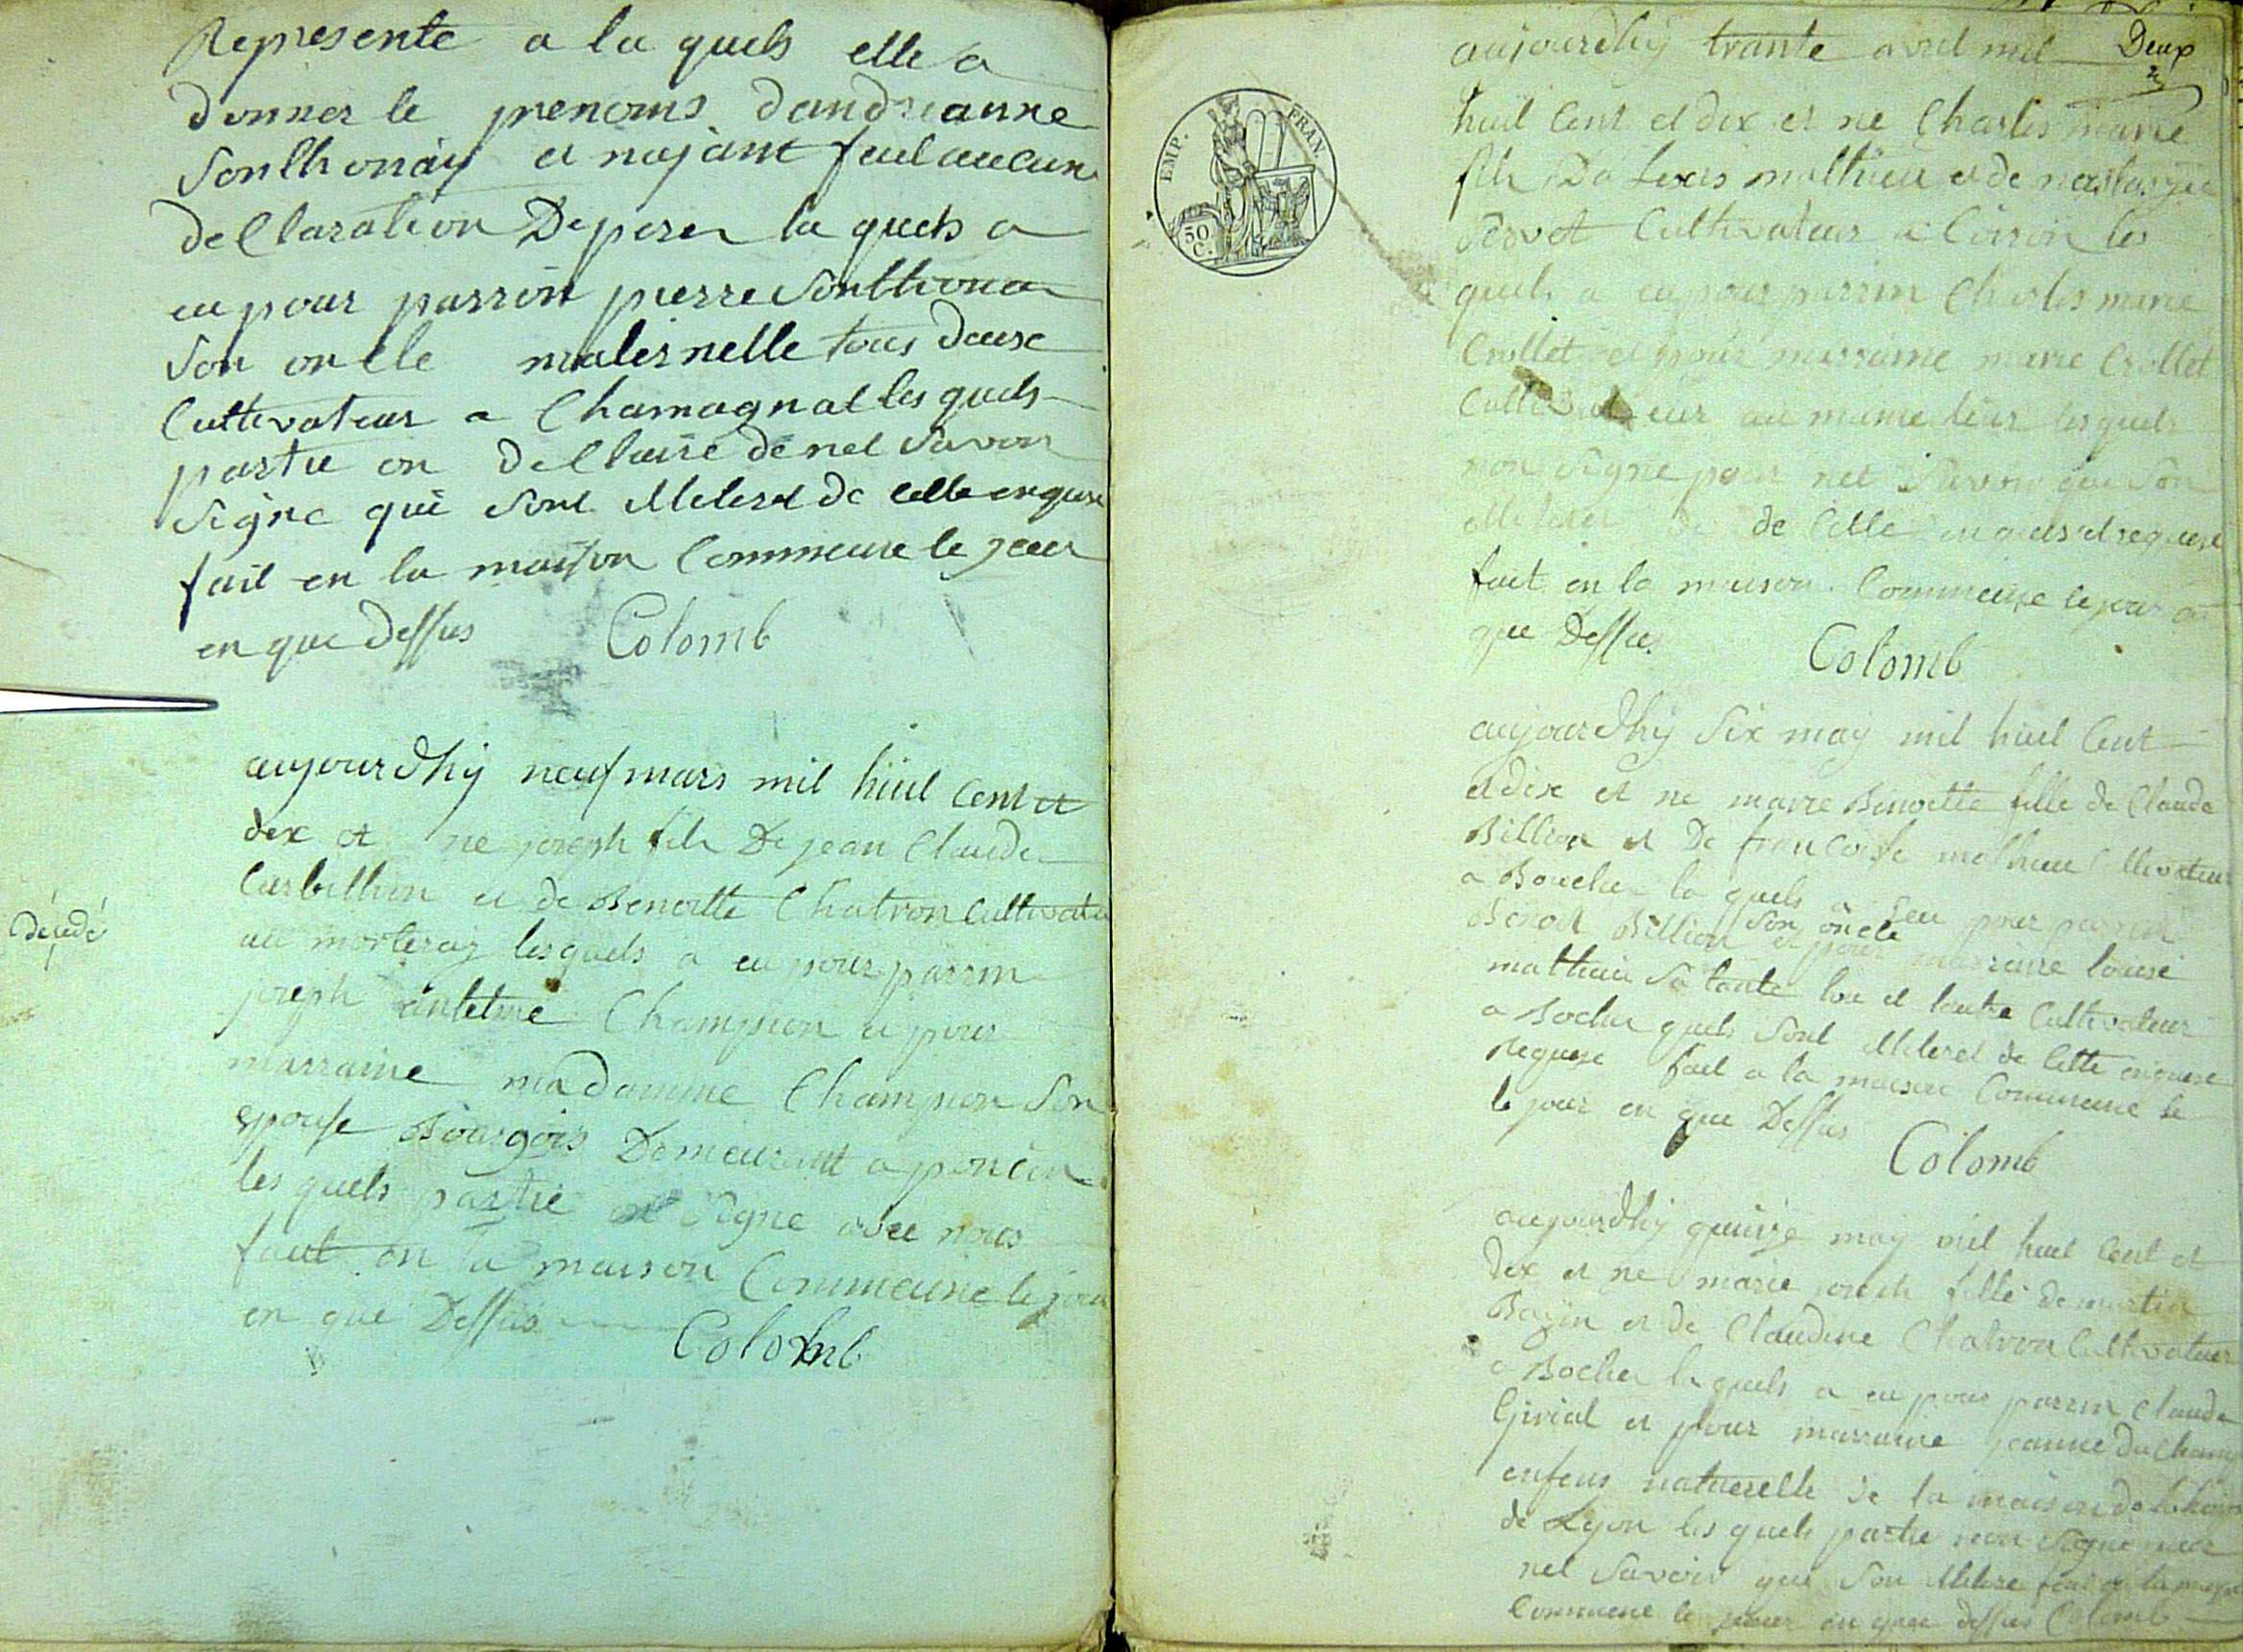 Represente a la quels elle a
donner le prenoms dandreanne
Sonthonay et najant feul aucune
deClaration Deperer la quels a
eu pour parrin pierre Sonthona
Son onCle maternelle tous deux
Cultivateur a Chamagnat les quels
partie on deClaire de nel Savoir
Signe que sont Meleset de Celle enquise
fait en la maison Commeune le jour
en que dessus Colomb
aujourdhÿ neuf mars mil huil Cent et
dex et ne joseph fils De jean Claude
Carbillion et de Benoitte Chatron Cultivateu
au morteray lesquels a eu pour parrin
joseph antelme Champion et pour
marraine madamme Champion Son
epouse Bourgois Demeurant a poncin
les quels partie ont Signe avec nous
fault en la maison Commeune le jour
en que Dessus Colomb
décédé
Deux
2
EMP. FRAN.
50 C.
aujourdhÿ trante avril mil
huil Cent et dix et ne Charles marie
fils De mathieu et de
Cultivateur a les
quels a eu pour parrin Charles marie
Crollet et pour marraine marie Crollet
Cultivateur au meme leur lesquels
non Signe pour nel Savoir que Son
de Celle enquis et requise
fait en la maison Commeune le jour en
que Dessus Colomb
aujourdhÿ Six may mil huil Cent
et dix et ne marie Benoitte fille de Claude
Billion et De francoise mathieu Cultivateur
a Boucher la quels a eeu pour parrin
Son oncle
Benoit Billion et pour marraine louise
mathieu Sa tante lun et lautre Cultivateur
a Bocher quels Sont Meleset de Cette enquise
Requise fail a la maison Commeune le
le jour en que Dessus
Colomb
aujourdhÿ quinze may mil huil Cent et
dix et ne marie joseph fille de martin
Bazin et de Claudine Chatron Cultivateur
a Bocher la quels a eu pour parrin Claude
et pour marraine jeanne duChamp
enfens natuerelle de la maison de
de Lyon les quels partie non Signe
nel Savoir que Son
Commune le jour en que dessus Colomb